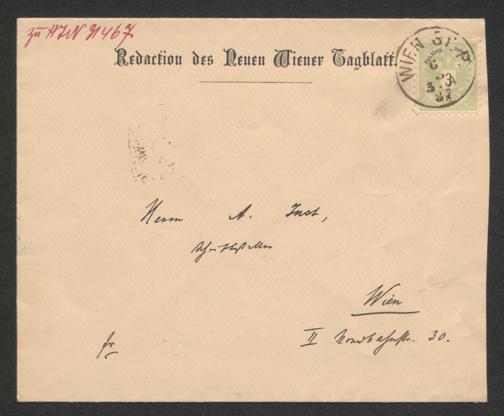 zu H.I.N. 91467
Redaction des Neuen Wiener Tagblatt.
WIEN
Herrn A. Just,
Schriftsteller
Wien
II Nordbahnstr. 30.
fr.